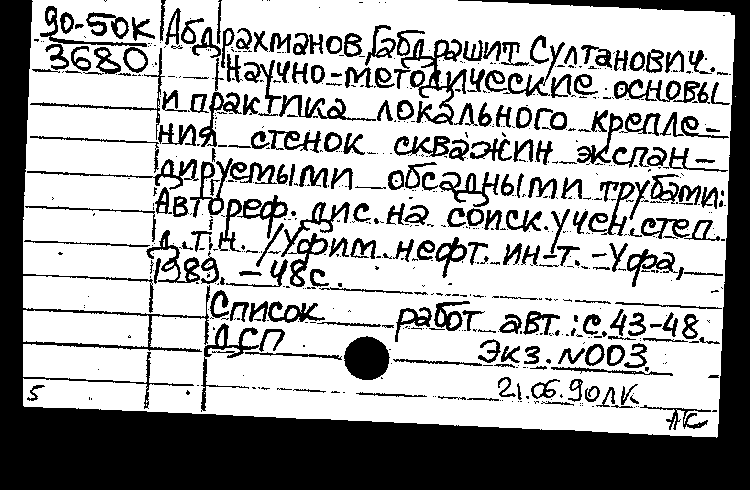 90-50К
3680
Абдрахманов, Габдрашит Султанович.
Научно-методические основы
и практика локального крепле-
ния стенок скважин экспан-
дируемыми обсадными трубами:
Автореф. дис. на соиск. учен. степ.
д.т.н. /Уфим. нефт. ин-т. -Уфа,
1989. - 48с.
Список работ авт.: с.43-48.
ДСП Экз. N003.
21.06.90 ЛК
5
АС